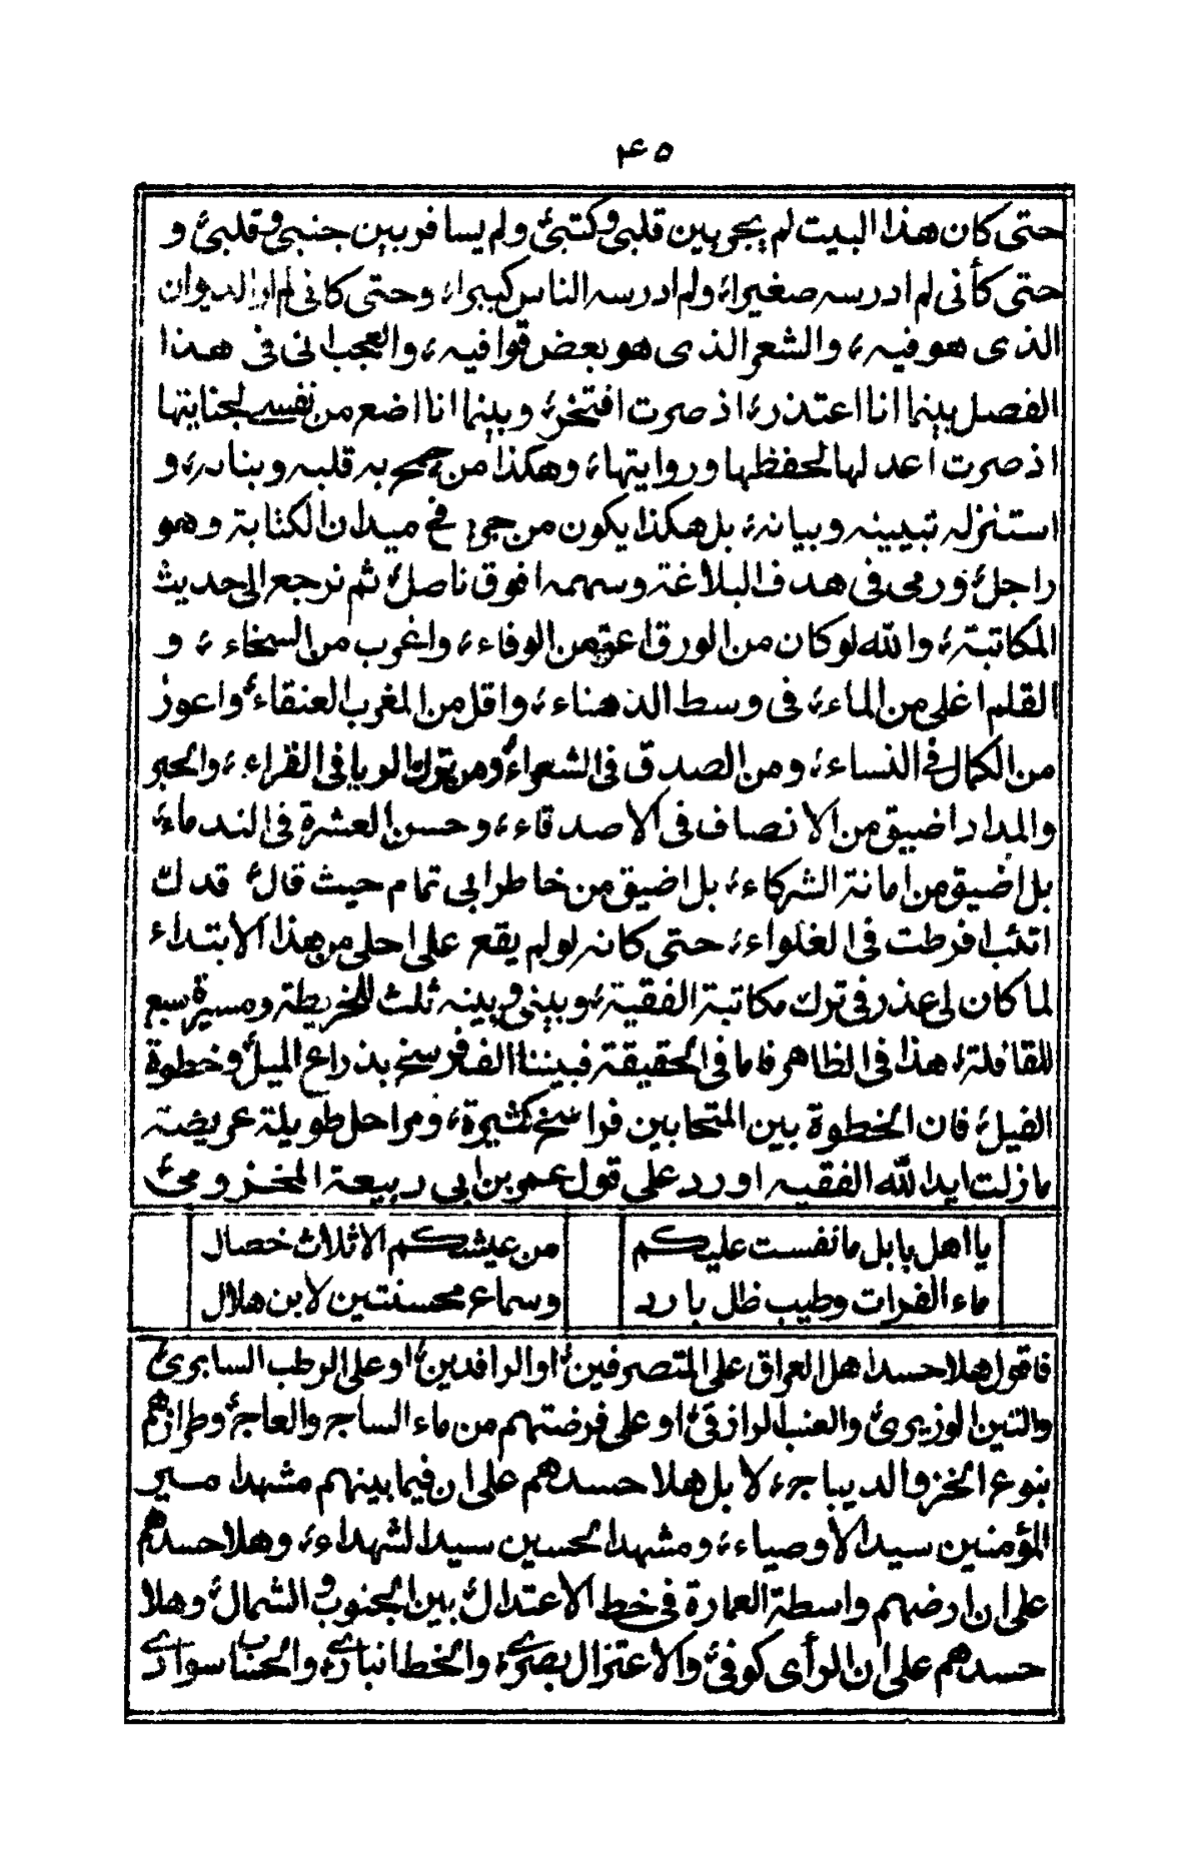 ٤٥
حتى كان هذا البيت لم يجر بين قلبي وكتبي ولم يسافر بين جنبي وقلبي و
حتى كأنى لم ادرسه صغيرا، ولم ادرسه الناس كبيرا، وحتى كانى لم ار الديوان
الذى هو فيه، والشعر الذى هو بعض قوافيه، والعجب انى فى هذا
الفصل بينما انا اعتذر، اذ صرت افتخر، وبينما انا اضع من نفسى لجنايتها
اذ صرت اعد لها لحفظها وروايتها، وهكذا من جمح به قلبه وبنانه، و
استنزله تبيينه وبيانه، بل هكذا يكون من جرى فى ميدان الكتابة وهو
راجل، ورمى فى هدف البلاغة وسهمه افوق ناصل، ثم نرجع الى حديث
المكاتبة، والله لو كان من الورق اعز من الوفاء، واغرب من السخاء، و
القلم اغلى من الماء، فى وسط الدهناء، واقل من المغرب العنقاء، واعوز
من الكمال فى النساء، ومن الصدق فى الشعراء، ومن ترك الريا فى القراء، والحبر
والمداد اضيق من الانصاف فى الاصدقاء، وحسن العشرة فى الندماء،
بل اضيق من امانة الشركاء، بل اضيق من خاطر ابى تمام حيث قال، قدك
اتئب افرطت فى الغلواء، حتى كانه لو لم يقع على احلى من هذا الابتداء
لما كان لى عذر فى ترك مكاتبة الفقيه، وبينى وبينه ثلث للخريطة ومسيرة سبع
للقافلة، هذا فى الظاهر فاما فى الحقيقة فبيننا الف فرسخ بذراع الميل، وخطوة
الفيل، فان الخطوة بين المتحابين فراسخ كثيرة، ومراحل طويلة عريضة
مازلت ايد الله الفقيه اورد على قول عمر بن ابى ربيعة المخزومى،
يا اهل بابل ما نفست عليكم من عيشكم الا ثلاث خصال
ماء الفرات وطيب ظل بارد وسماع محسنتين لابن هلال
فاقول هلا حسد اهل العراق على المتصرفين، او الرافدين، او على الرطب السابرى،
والتين الوزيرى، والعنب الرازقى، او على فرضتهم من ماء الساج والعاج، وطرازهم
بنوع الخز والديباج، لا بل هلا حسدهم على ان فيما بينهم مشهدا مير
المؤمنين سيد الاوصياء، ومشهد الحسين سيد الشهداء، وهلا حسدهم
على ان ارضهم واسطة العمارة فى خط الاعتدال، بين الجنوب والشمال، وهلا
حسدهم على ان الرأى كوفى، والاعتزال بصرى، والخط انبارى، والحساب سوادى